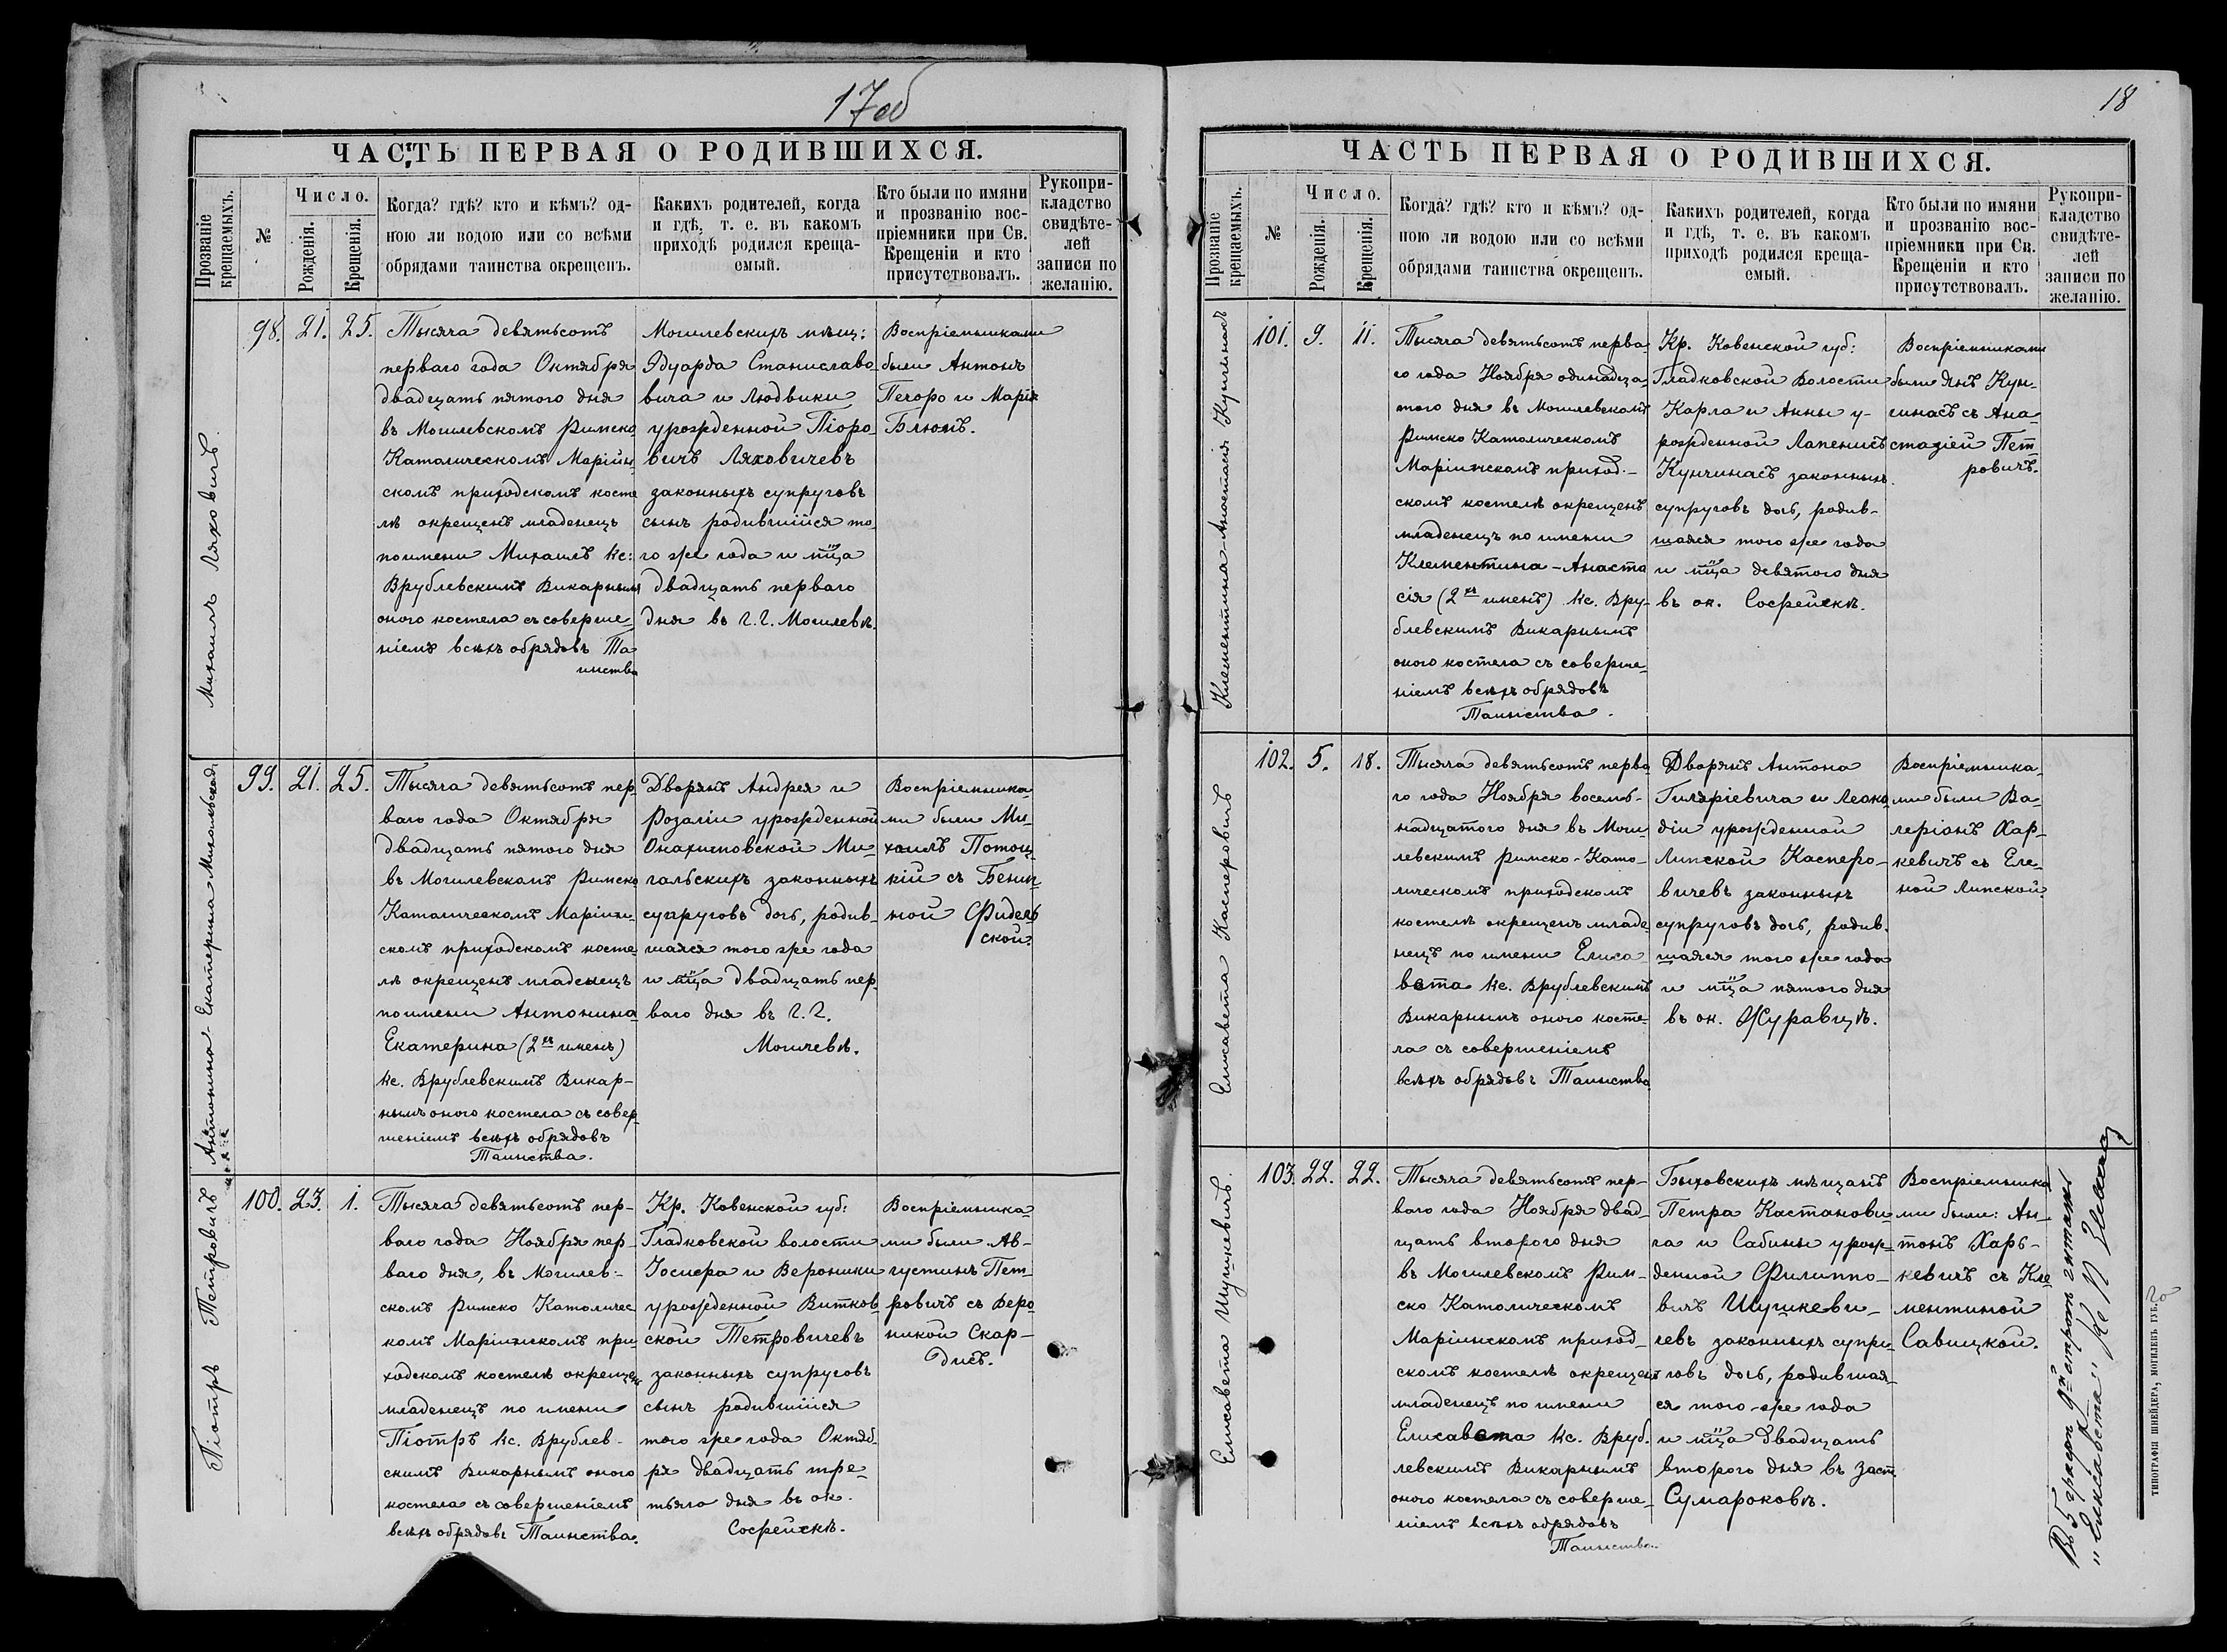 17об
ЧАСТЬ ПЕРВАЯ О РОДИВШИХСЯ.
Прозваніе крещаемыхъ.
№
Число.
Рожденія.
Крещенія.
Когда? гдѣ? кто и кѣмъ? од-
ною ли водою или со всѣми
обрядами таинства окрещенъ.
Какихъ родителей, когда
и гдѣ, т. е. въ какомъ
приходѣ родился креща-
емый.
Кто были по имяни
и прозванію вос-
пріемники при Св.
Крещеніи и кто
присутствовалъ.
Рукопри-
кладство
свидѣте-
лей
записи по
желанію.
Михаилъ Ляховичъ.
98. 21. 25.
Тысяча девятьсотъ
перваго года Октября
двадцать пятого дня
въ Могилевскомъ Римско
Католическомъ Маріин-
скомъ приходскомъ косте
лѣ окрещенъ младенецъ
по имени Михаилъ Кс:
Врублевскимъ Викарнымъ
оного костела съ соверше-
ніемъ всѣхъ обрядовъ Та
инства
Могилевскихъ мѣщ:
Эдуарда Станиславо-
вича и Людвики
урожденной Піоро-
вичъ Ляховичевъ
законныхъ супруговъ
сынъ родившійся то
го же года и мца
двадцать перваго
дня въ г. г. Могилевѣ.
Воспріемниками
были Антонъ
Печоро и Марія
Блюмъ.
Антонина-Екатерина Михальская
99. 21. 25.
Тысяча девятьсотъ пер-
ваго года Октября
двадцать пятого дня
въ Могилевскомъ Римско
Католическомъ Маріин-
скомъ приходскомъ косте-
лѣ окрещенъ младенецъ
по имени Антонина-
Екатерина (2хъ именъ)
Кс. Врублевскимъ Викар-
нымъ оного костела съ совер-
шеніемъ всѣхъ обрядовъ
Таинства.
Дворянъ Андрея и
Розаліи урожденной
Ми-
гальскихъ законныхъ
супруговъ дочь, родив-
шаяся того же года
и мца двадцать пер-
ваго дня въ г. г.
Могилевѣ.
Воспріемника-
ми были Ми-
хаилъ Потоц-
кій съ Бениг-
ной Фидель
ской.
Піотръ Петровичъ
100. 23. 1.
Тысяча девятьсотъ пер-
ваго года Ноября пер-
ваго дня, въ Могилев-
скомъ Римско Католичес
комъ Маріинскомъ при-
ходскомъ костелѣ окрещенъ
младенецъ по имени
Піотръ Кс. Врублев-
скимъ Викарнымъ оного
костела съ совершеніемъ
всѣхъ обрядовъ Таинства.
Кр. Ковенской губ:
Гладковской волости
Іосифа и Вероники
урожденной Витков-
ской Петровичевъ
законныхъ супруговъ
сынъ родившійся
того же года Октяб-
ря двадцать тре-
тьяго дня въ ок.
Софейскѣ.
Воспріемника-
ми были Ав-
густинъ Пет-
ровичъ съ Веро
никой Скар-
дисъ.
18
ЧАСТЬ ПЕРВАЯ О РОДИВШИХСЯ.
Прозваніе крещаемыхъ.
№
Число.
Рожденія.
Крещенія.
Когда? гдѣ? кто и кѣмъ? од-
ною ли водою или со всѣми
обрядами таинства окрещенъ.
Какихъ родителей, когда
и гдѣ, т. е. въ какомъ
приходѣ родился креща-
емый.
Кто были по имяни
и прозванію вос-
пріемники при Св.
Крещеніи и кто
присутствовалъ.
Рукопри-
кладство
свидѣте-
лей
записи по
желанію.
Клементина-Анастасія Кунчинасъ
101. 9. 11.
Тысяча девятьсотъ перва-
го года Ноября одинадца-
того дня въ Могилевскомъ
Римско Католическомъ
Маріинскомъ приход-
скомъ костелѣ окрещенъ
младенецъ по имени
Клементина-Анаста
сія (2хъ именъ) Кс. Вру-
блевскимъ Викарнымъ
оного костела съ соверше-
ніемъ всѣхъ обрядовъ
Таинства.
Кр. Ковенской губ:
Гладковской Волости
Карла и Анны у-
рожденной Лапенисъ
Кунчинасъ законныхъ
супруговъ дочь, родив-
шаяся того же года
и мца девятого дня
въ ок. Софейскѣ.
Воспріемниками
были Янъ Кун-
чинасъ съ Ана-
стазіей Пет-
ровичъ.
Елисавета Касперовичъ
102. 5. 18.
Тысяча девятьсотъ перва
го года Ноября восемь-
надцатого дня въ Моги-
левскимъ Римско-Като-
лическомъ приходскомъ
костелѣ окрещенъ младе-
нецъ по имени Елиса-
вета Кс. Врублевскимъ
Викарнымъ оного косте-
ла съ совершеніемъ
всѣхъ обрядовъ Таинства
Дворянъ Антона
Гиляріевича и Леока-
діи урожденной
Липской Касперо-
вичевъ законныхъ
супруговъ дочь, родив-
шаяся того же года
и мца пятого дня
въ ок. Журавцѣ.
Воспріемника-
ми были Ва-
леріанъ Хар-
кевичъ съ Еле-
ной Липской.
Елисавета Шушкевичъ.
103. 22. 22.
Тысяча девятьсотъ пер-
ваго года Ноября двад-
цать второго дня
въ Могилевскомъ Рим-
ско Католическомъ
Маріинскомъ приход-
скомъ костелѣ окрещенъ
младенецъ по имени
Елисавета Кс. Вруб-
левскимъ Викарнымъ
оного костела съ соверше-
ніемъ всѣхъ обрядовъ
Таинства.
Быховскихъ мѣщанъ
Петра Кастанови-
ча и Сабины урож-
денной Филиппо-
вичъ Шушкеви-
чевъ законныхъ супру-
говъ дочь, родившая-
ся того-же года
и мца двадцать
второго дня въ заст.
Сумароковѣ.
Воспріемника
ми были: Ан-
тонъ Харь-
кевичъ съ Кле
ментиной
Савицкой.
Въ 5 графѣ 9й строкѣ читать
"Елисавета" Кс
ТИПОГРАФІЯ ШНЕЙДЕРА, МОГИЛЕВЪ ГУБ.